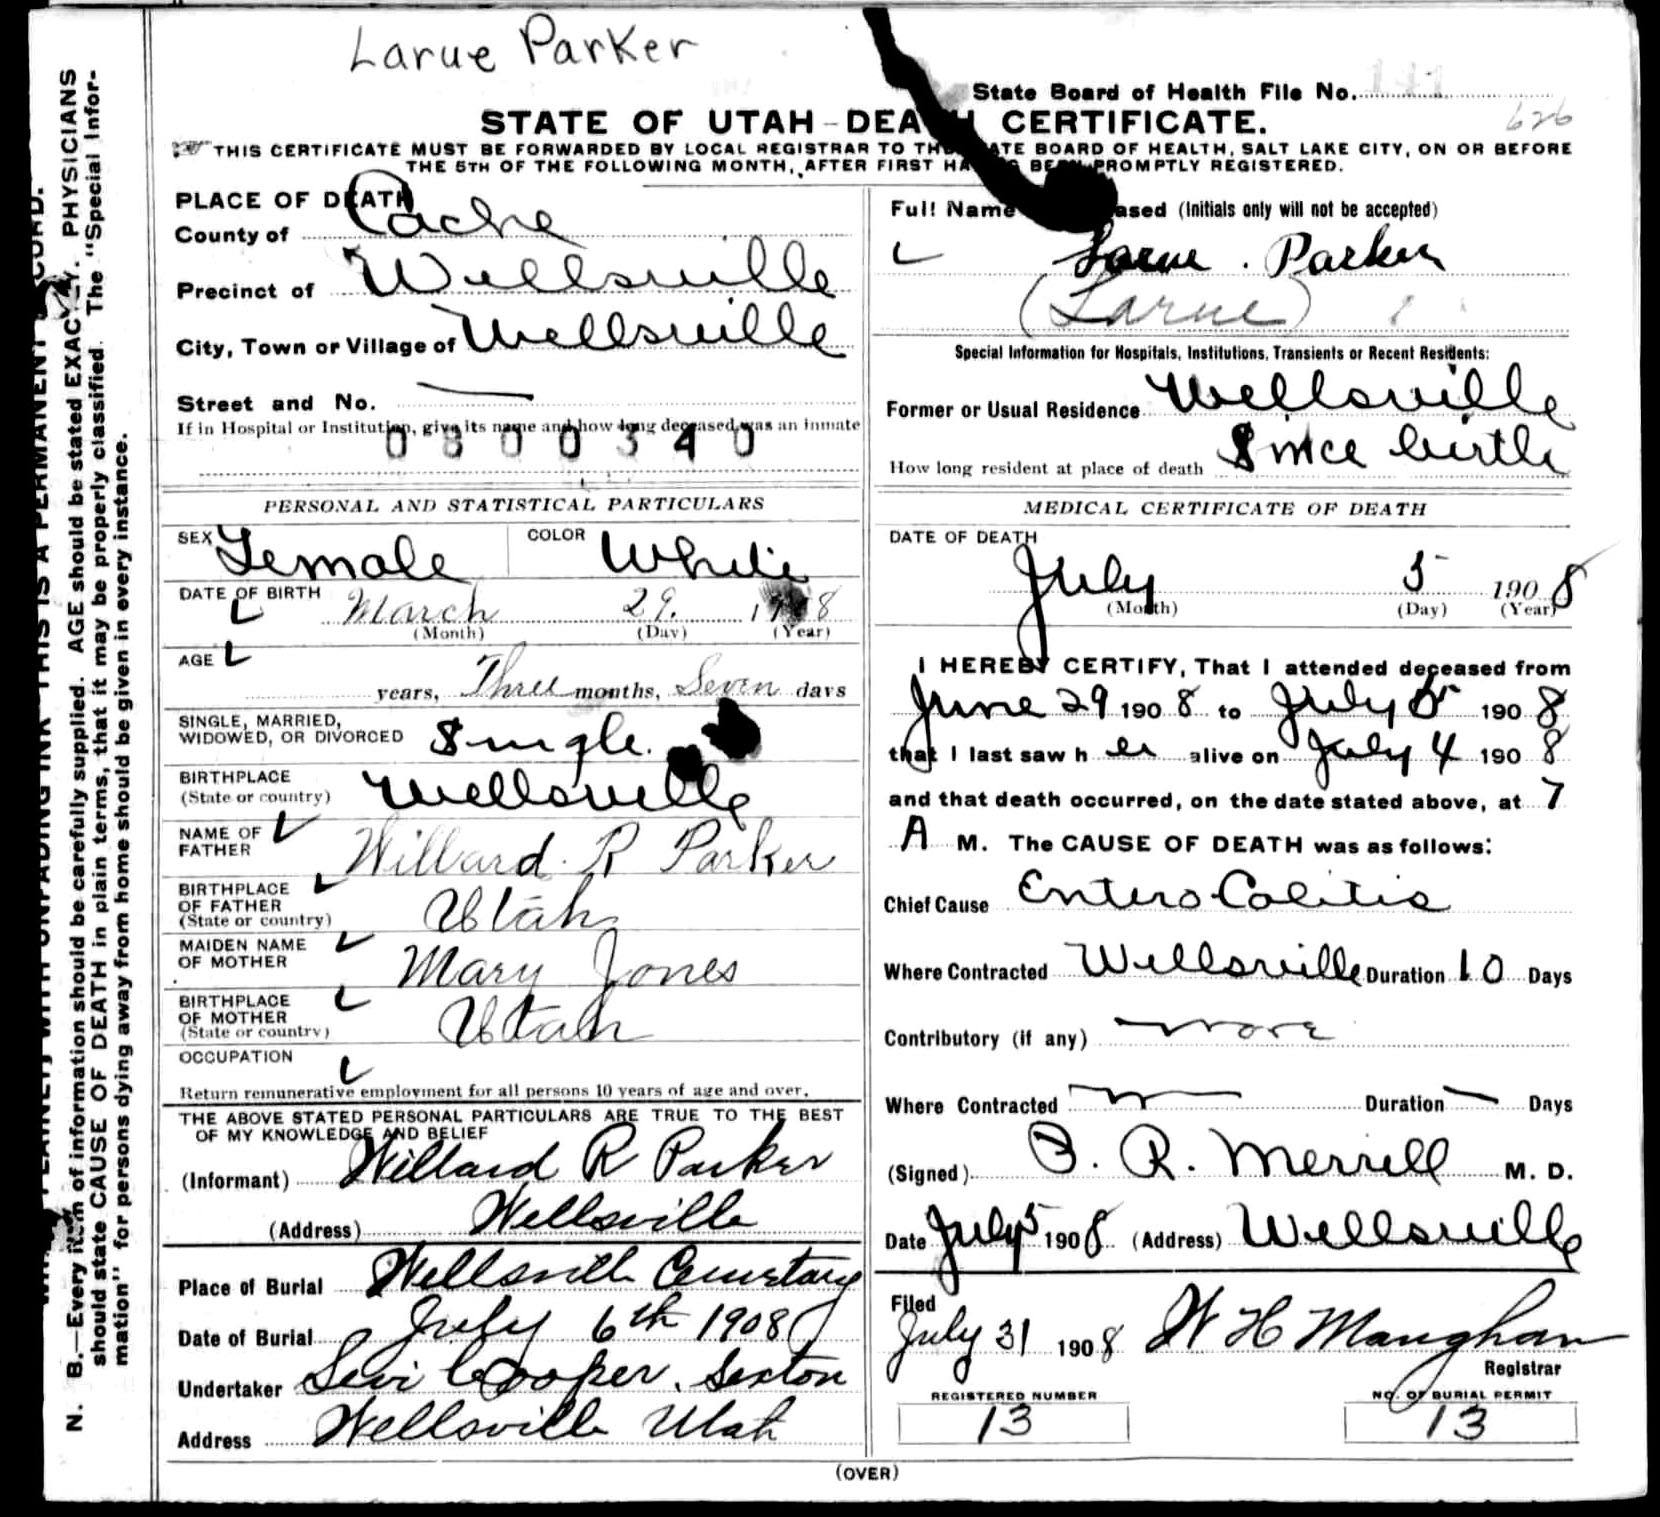 Larue Parker
State Board of Health File No.
626
STATE OF UTAH-DEATH CERTIFICATE.
THIS CERTIFICATE MUST BE FORWARDED BY LOCAL REGISTRAR TO THE STATE BOARD OF HEALTH, SALT LAKE CITY, ON OR BEFORE
THE 5TH OF THE FOLLOWING MONTH, AFTER FIRST HAVING BEEN PROMPTLY REGISTERED.
N. B.—Every item of information should be carefully supplied. AGE should be stated EXACTLY. PHYSICIANS
should state CAUSE OF DEATH in plain terms, that it may be properly classified. The "Special Infor-
mation" for persons dying away from home should be given in every instance.
PLACE OF DEATH
County of Cache
Precinct of Wellsville
City, Town or Village of Wellsville
Street and No. —
If in Hospital or Institution, give its name and how long deceased was an inmate
0800340
PERSONAL AND STATISTICAL PARTICULARS
SEX Female COLOR White
DATE OF BIRTH March 29. 1908
(Month) (Day) (Year)
AGE years, Three months, Seven days
SINGLE, MARRIED,
WIDOWED, OR DIVORCED Single.
BIRTHPLACE
(State or country) Wellsville
NAME OF
FATHER Willard R Parker
BIRTHPLACE
OF FATHER
(State or country) Utah
MAIDEN NAME
OF MOTHER Mary Jones
BIRTHPLACE
OF MOTHER
(State or country) Utah
OCCUPATION
Return remunerative employment for all persons 10 years of age and over.
THE ABOVE STATED PERSONAL PARTICULARS ARE TRUE TO THE BEST
OF MY KNOWLEDGE AND BELIEF
(Informant) Willard R Parker
(Address) Wellsville
Place of Burial Wellsville Cemetary
Date of Burial July 6th 1908
Undertaker Levi Cooper, Sexton
Address Wellsville Utah
Full Name of Deceased (Initials only will not be accepted)
Larue. Parker
(Larue)
Special Information for Hospitals, Institutions, Transients or Recent Residents:
Former or Usual Residence Wellsville
How long resident at place of death Since birth
MEDICAL CERTIFICATE OF DEATH
DATE OF DEATH
July 5 1908
(Month) (Day) (Year)
I HEREBY CERTIFY, That I attended deceased from
June 29 1908 to July 5 1908
that I last saw her alive on July 4 1908
and that death occurred, on the date stated above, at 7
A M. The CAUSE OF DEATH was as follows:
Chief Cause Entero Colitis
Where Contracted Wellsville Duration 10 Days
Contributory (if any) none
Where Contracted — Duration — Days
(Signed) B. R. Merrill M. D.
Date July 5 1908 (Address) Wellsville
Filed
July 31 1908 W H Maughan
Registrar
REGISTERED NUMBER NO. OF BURIAL PERMIT
13 13
(OVER)